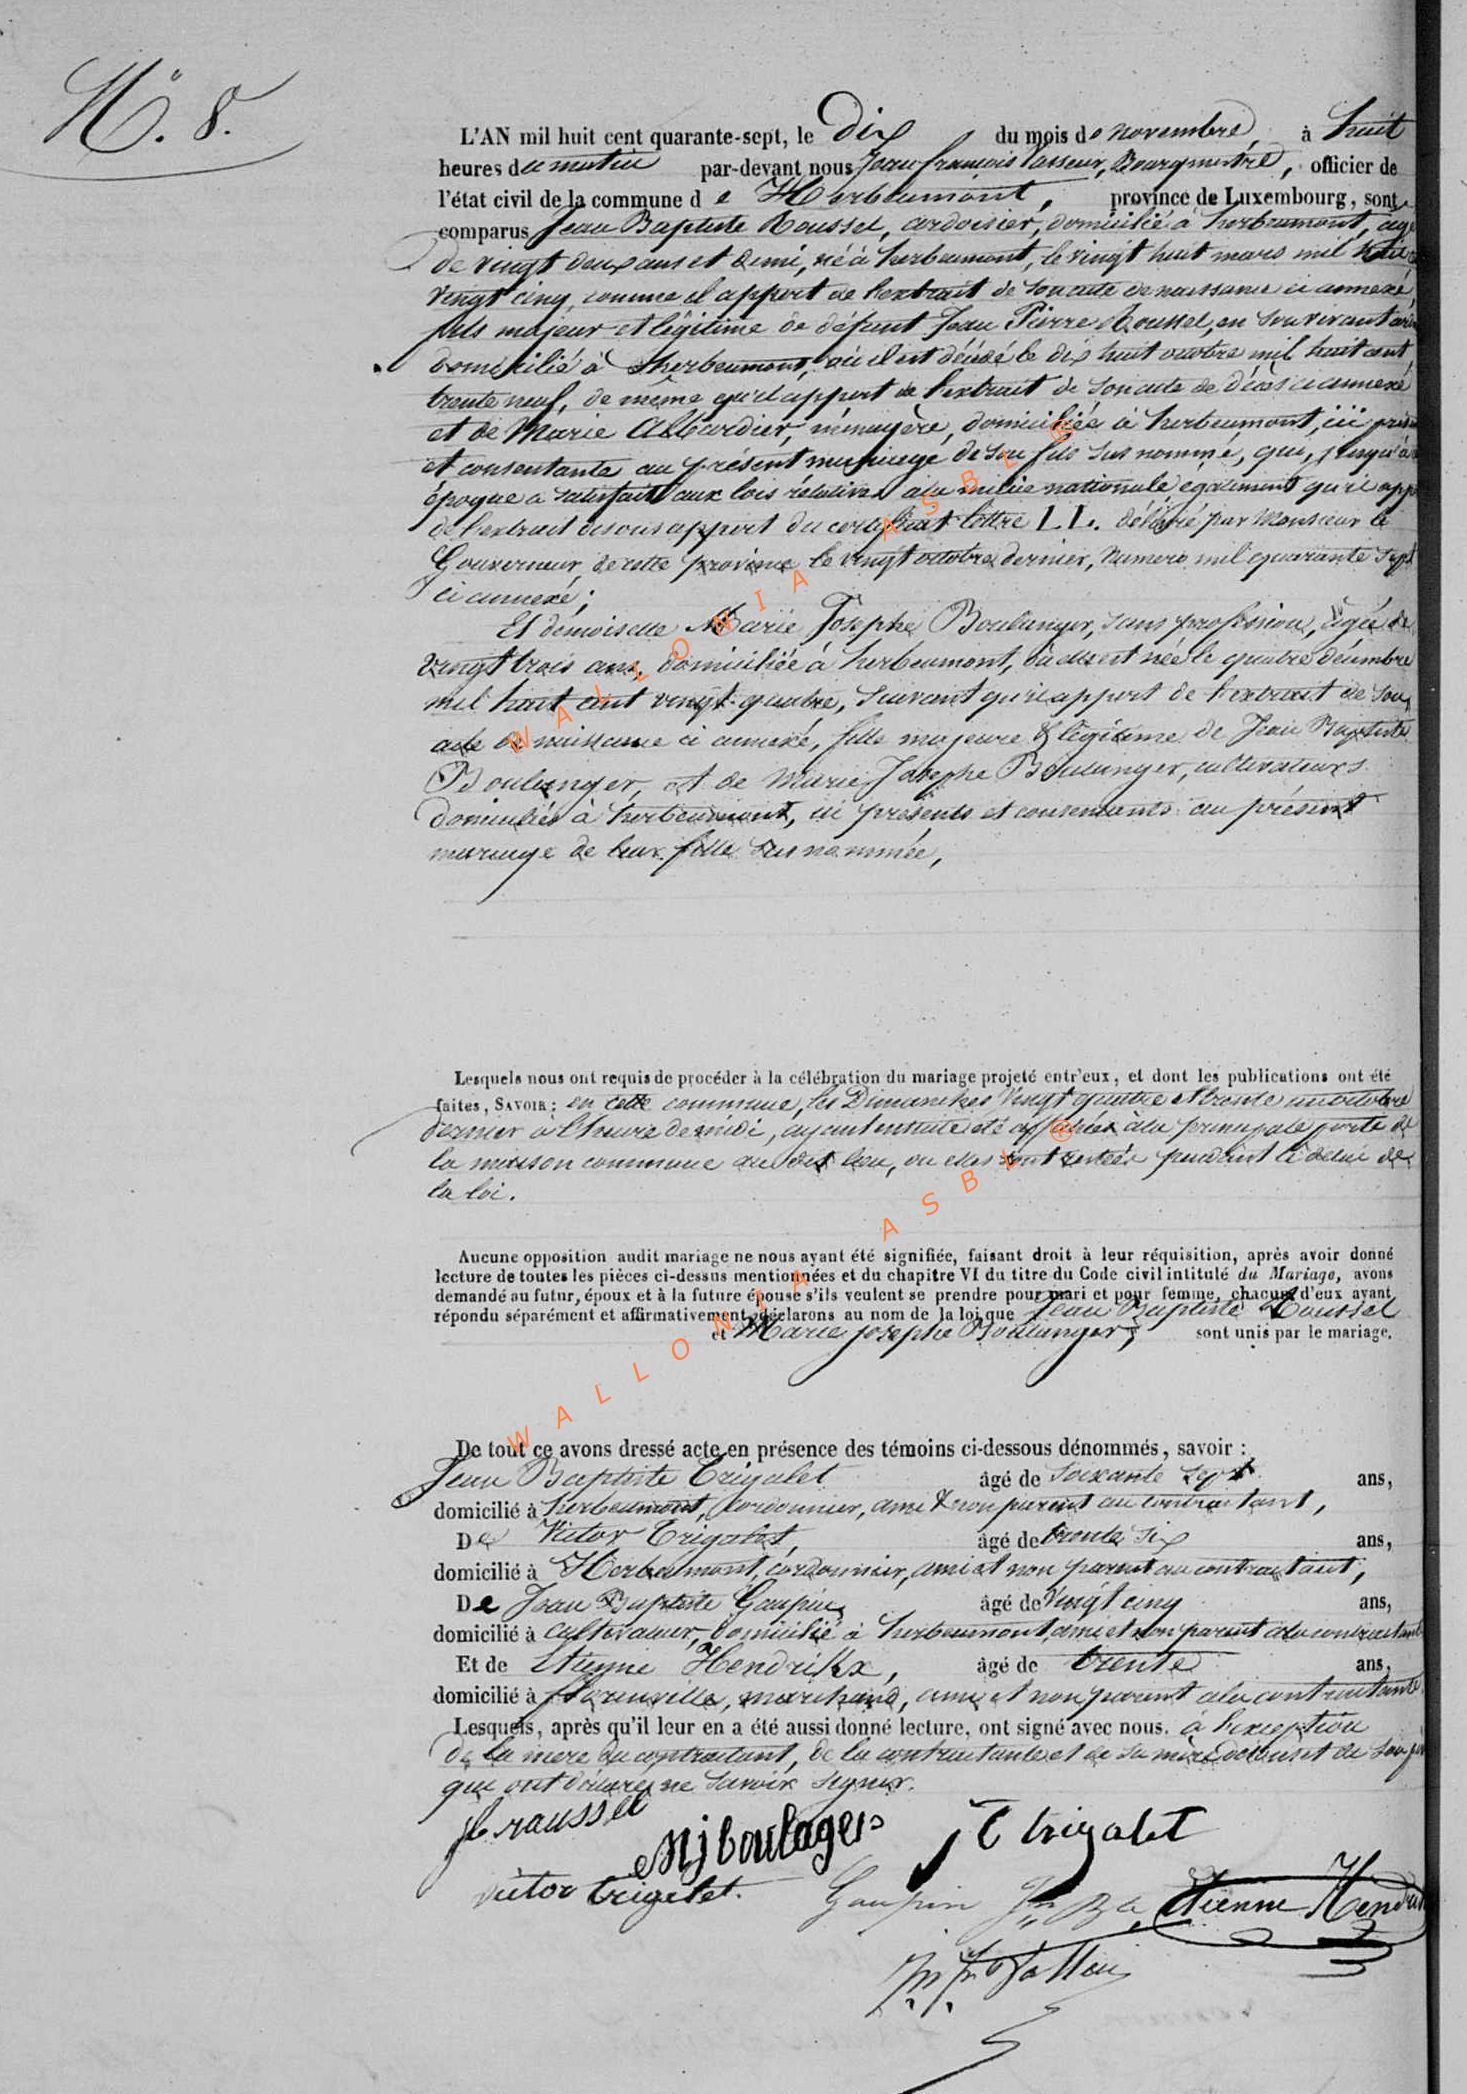 N.° 8.
L'AN mil huit cent quarante-sept, le dix du mois de novembre, à huit
heures du matin par-devant nous Jean françois Vasseur, Bourgmestre, officier de
l'état civil de la commune d e Herbeumont, province de Luxembourg, sont
comparus Jean Baptiste Roussel, ardoisier, domicilié à herbeumont, agé
de vingt deux ans et demi, né à herbeumont, le vingt huit mars mil huit
vingt cinq, comme il appert de l'extrait de son acte de naissance ci annexé,
fils majeur et légitime de défunt Jean Pierre Roussel, en son vivant
domicilié à herbeumont, où il est décédé le dix huit octobre mil huit cent
trente neuf, de même qu'il appert de l'extrait de son acte de décès ci annexé
et de Marie Albardier, ménagère, domiciliée à herbeumont, ici
et consentante au présent mariage de son fils sus nommé, qui, jusqu'à
époque a satisfait aux lois rélatives à la milice nationale également qu'il
de l'extrait du certificat lettre LL. délivré par Monsieur le
Gouverneur de cette province le vingt octobre dernier, numero mil quarante sept
ci annexé;
Et demoiselle Marie Josephe Boulanger, sans profession, âgée de
vingt trois ans, domiciliée à herbeumont, où elle est née le quatre décembre
mil huit cent vingt-quatre, suivant qu'il appert de l'extrait de son
acte de naissance ci annexé, fille majeure & légitime de Jean Baptiste
Boulanger, et de Marie Josephe Boulanger, cultivateurs
domiciliés à herbeumont, ici présents et consentants au présent
mariage de leur fille sus nommée,
Lesquels nous ont requis de procéder à la célébration du mariage projeté entr'eux, et dont les publications ont été
faites, SAVOIR: en cette commune, les Dimanches vingt quatre et trente un octobre
dernier à l'heure de midi, ayant ensuite été affichées à la principale porte de
la maison commune au dit lieu, ou elles sont restées pendant le délai de
la loi.
Aucune opposition audit mariage ne nous ayant été signifiée, faisant droit à leur réquisition, après avoir donné
lecture de toutes les pièces ci-dessus mentionnées et du chapitre VI du titre du Code civil intitulé du Mariage, avons
demandé au futur, époux et à la future épouse s'ils veulent se prendre pour mari et pour femme, chacun d'eux ayant
répondu séparément et affirmativement, déclarons au nom de la loi que Jean Baptiste Roussel
et Marie Josephe Boulanger, sont unis par le mariage.
De tout ce avons dressé acte en présence des témoins ci-dessous dénommés, savoir :
Jean Baptiste Trigalet âgé de soixante sept ans,
domicilié à herbeumont, cordonnier, ami & non parent au contractant,
De Victor Trigalet, âgé de trente six ans,
domicilié à Herbeumont, cordonnier, ami et non parent au contractant,
De Jean Baptiste Gaupin âgé de vingt cinq ans,
domicilié à cultivateur, domicilié à herbeumont, ami et non parent à la contractante
Et de Etienne Hendrikx, âgé de trente ans,
domicilié à florenville, marchand, ami et non parent à la contractante.
Lesquels, après qu'il leur en a été aussi donné lecture, ont signé avec nous. à l'exception
de la mere du contractant, de la contractante et de sa mère
qui ont déclaré ne savoir signer.
jb raussel
mj boulager J B trigalet
victor trigalet. Gaupin Jn Bte Etienne Hendrikx
WALLONIA ASBL ®
WALLONIA ASBL ®